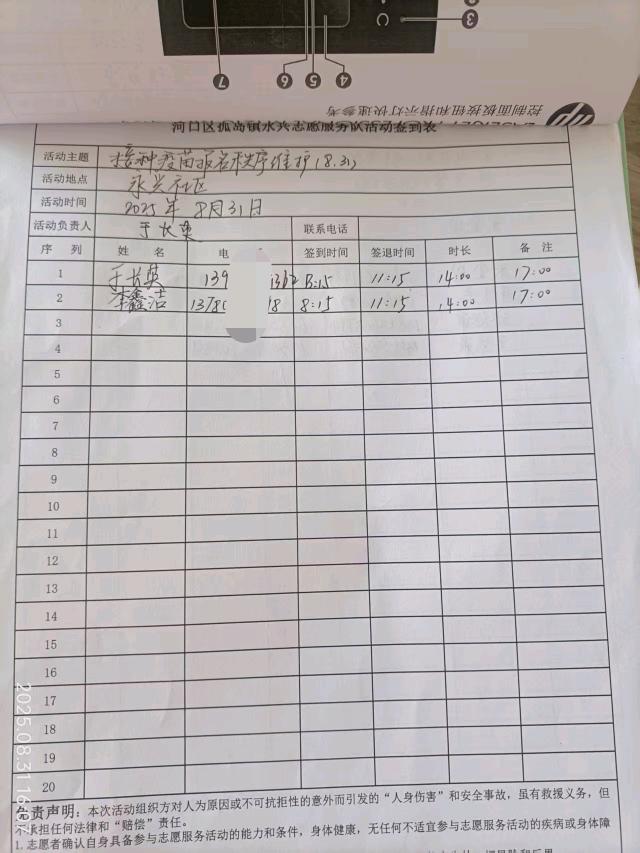 ③
④
⑤
⑥
⑦
控制面板按钮和指示灯快速参考
hp
河口区孤岛镇永兴志愿服务队活动签到表
活动主题 接种疫苗报名秩序维护(8.31)
活动地点 永兴社区
活动时间 2025年8月31日
活动负责人 于长英 联系电话
序 列 姓 名 电 签到时间 签退时间 时长 备 注
1 于长英 139 8:15 11:15 14:00 17:00
2 李鑫洁 1378 8 8:15 11:15 14:00 17:00
3
4
5
6
7
8
9
10
11
12
13
14
15
16
17
18
19
20
免责声明：本次活动组织方对人为原因或不可抗拒性的意外而引发的“人身伤害”和安全事故，虽有救援义务，但
不承担任何法律和“赔偿”责任。
1. 志愿者确认自身具备参与志愿服务活动的能力和条件，身体健康，无任何不适宜参与志愿服务活动的疾病或身体障
2025.08.31 16:07